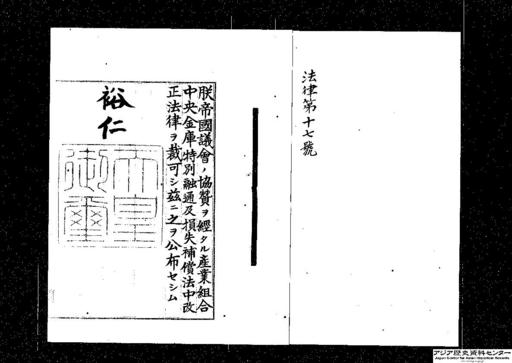 法律第十七號
朕帝國議會ノ協贊ヲ經タル產業組合
中央金庫特別融通及損失補償法中改
正法律ヲ裁可シ茲ニ之ヲ公布セシム
裕仁
天皇
御璽
アジア歴史資料センター
Japan Center for Asian Historical Records